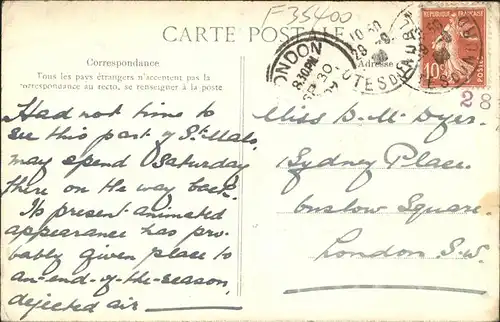 F35400
CARTE POSTALE
Correspondance
Tous les pays étrangers n'acceptent pas la
correspondance au recto, se renseigner à la poste.
Adresse
LONDON
8.30PM
SP 30
10 30
29 9
RÉPUBLIQUE FRANÇAISE
10
POSTES
28
Had not time to
see this part of St Malo,
may spend Saturday
there on the way back.
Its present animated
appearance has pro-
bably given place to
an-end-of-the-season,
dejected air
Miss D. M. Dyer.
Sydney Place.
Onslow Square.
London. S.W.